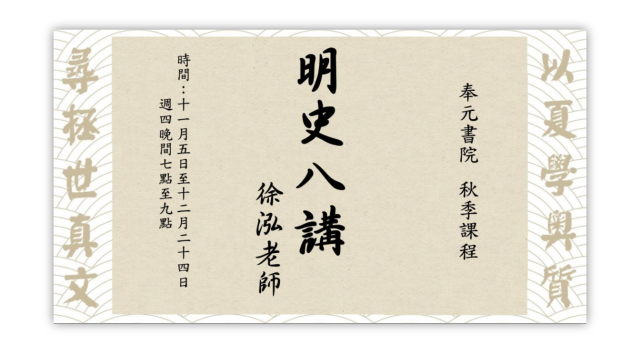 以夏學奧質
奉元書院 秋季課程
明史八講
徐泓老師
時間：十一月五日至十二月二十四日
週四晚間七點至九點
尋拯世真文